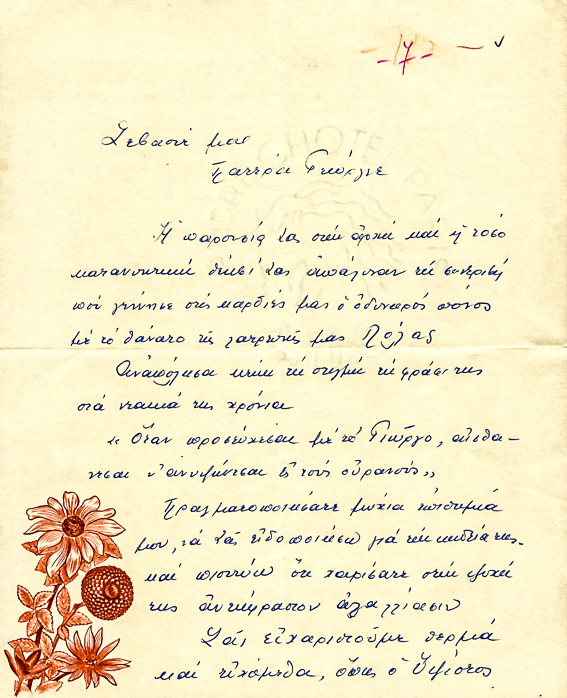 -7-
Σεβαστέ μας
Πάτερα Γιώργιε
Ἡ παρουσία σας στήν καί ἡ τόσο
κατανυκτική δέησί σας ἁπάλυναν τή
πού γέννησε στίς καρδιές μας ὁ ὀδυνηρός πόνος
μέ τό θάνατο τῆς λατρευτῆς μας Πόλας
Ἀναπόλησα τή στιγμή τή φράσι της
στά νεανικά της χρόνια
« Ὅταν προσεύχεσαι μέ τό Γιώργο, αἰσθά-
νεσαι ν' ἀνυψώνεσαι ἐς τούς οὐρανούς »
Πραγματοποιήσατε μύχια ἐπιθυμιά
μου, νά Σᾶς εἰδοποιήσω γιά τήν κηδεία της-
καί πιστεύω ὅτι χαρίσατε στήν ψυχή
της ἀγαλλίασιν
Σᾶς εὐχαριστοῦμε θερμά
καί εὐχόμεθα, ὅπως ὁ Ὕψιστος